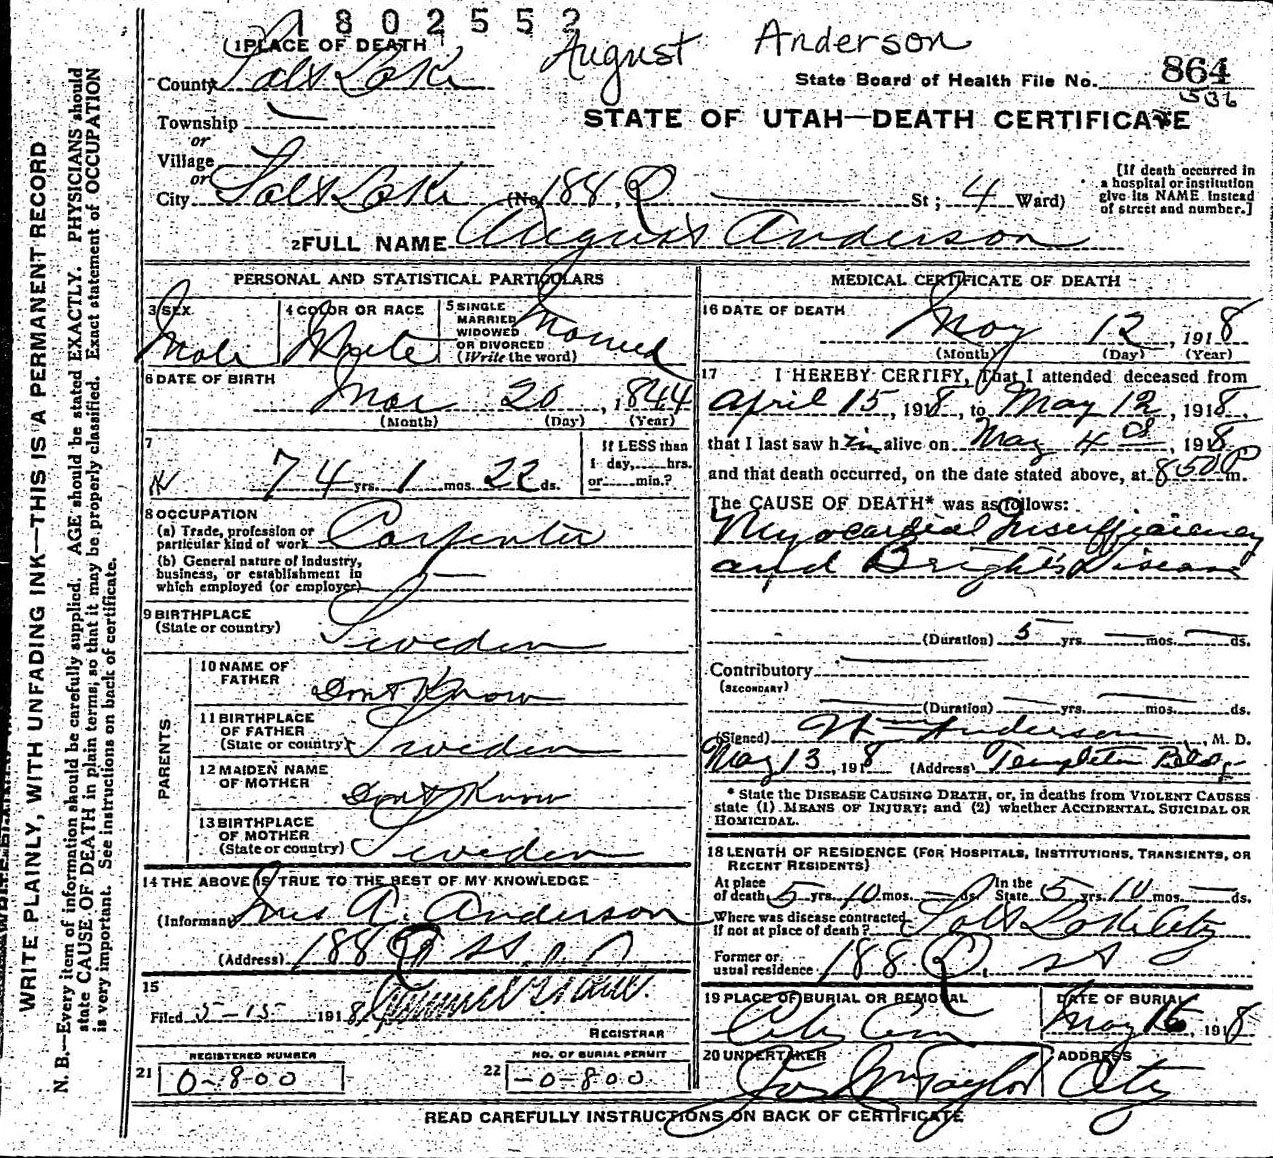 1802552
August Anderson
1 PLACE OF DEATH
County Salt Lake
State Board of Health File No. 864
536
Township
or
Village
or
City Salt Lake (No. 188, Q St; 4 Ward)
STATE OF UTAH—DEATH CERTIFICATE
[If death occurred in
a hospital or institution
give its NAME instead
of street and number.]
2 FULL NAME August Anderson
PERSONAL AND STATISTICAL PARTICULARS
3 SEX Male
4 COLOR OR RACE White
5 SINGLE
MARRIED
WIDOWED
OR DIVORCED
(Write the word) Married
6 DATE OF BIRTH
Mar 20, 1844
(Month) (Day) (Year)
7
74 yrs. 1 mos. 22 ds.
If LESS than
1 day,......hrs.
or......min.?
8 OCCUPATION
(a) Trade, profession or
particular kind of work Carpenter
(b) General nature of industry,
business, or establishment in
which employed (or employer)
9 BIRTHPLACE
(State or country) Sweden
PARENTS
10 NAME OF
FATHER Dont Know
11 BIRTHPLACE
OF FATHER
(State or country) Sweden
12 MAIDEN NAME
OF MOTHER Dont Know
13 BIRTHPLACE
OF MOTHER
(State or country) Sweden
14 THE ABOVE IS TRUE TO THE BEST OF MY KNOWLEDGE
(Informant) Mrs A. Anderson
(Address) 188 Q St.
15
Filed 5-15- 1918
REGISTRAR
REGISTERED NUMBER
21 0-800
NO. OF BURIAL PERMIT
22 -0-800
MEDICAL CERTIFICATE OF DEATH
16 DATE OF DEATH
May 12, 1918
(Month) (Day) (Year)
17 I HEREBY CERTIFY, That I attended deceased from
April 15, 1918, to May 12, 1918,
that I last saw him alive on May 4, 1918
and that death occurred, on the date stated above, at 8 50 P m.
The CAUSE OF DEATH* was as follows:
Myocardial Insufficiency
and Bright's Disease
(Duration) 5 yrs. mos. ds.
Contributory
(SECONDARY)
(Duration) yrs. mos. ds.
(Signed) Wm Anderson, M. D.
May 13, 1918 (Address) Templeton Bldg
* State the DISEASE CAUSING DEATH, or, in deaths from VIOLENT CAUSES
state (1) MEANS OF INJURY; and (2) whether ACCIDENTAL, SUICIDAL OR
HOMICIDAL.
18 LENGTH OF RESIDENCE (FOR HOSPITALS, INSTITUTIONS, TRANSIENTS, OR
RECENT RESIDENTS)
At place
of death 5 yrs. 10 mos. ds. In the
State 5 yrs. 10 mos. ds.
Where was disease contracted
If not at place of death? Salt Lake City
Former or
usual residence 188 Q. St
19 PLACE OF BURIAL OR REMOVAL
City Cem
DATE OF BURIAL
May 16, 1918
20 UNDERTAKER
Jos Wm Taylor
ADDRESS
City
READ CAREFULLY INSTRUCTIONS ON BACK OF CERTIFICATE
WRITE PLAINLY, WITH UNFADING INK—THIS IS A PERMANENT RECORD
N. B.—Every item of information should be carefully supplied. AGE should be stated EXACTLY. PHYSICIANS should
state CAUSE OF DEATH in plain terms, so that it may be properly classified. Exact statement of OCCUPATION
is very important. See instructions on back of certificate.